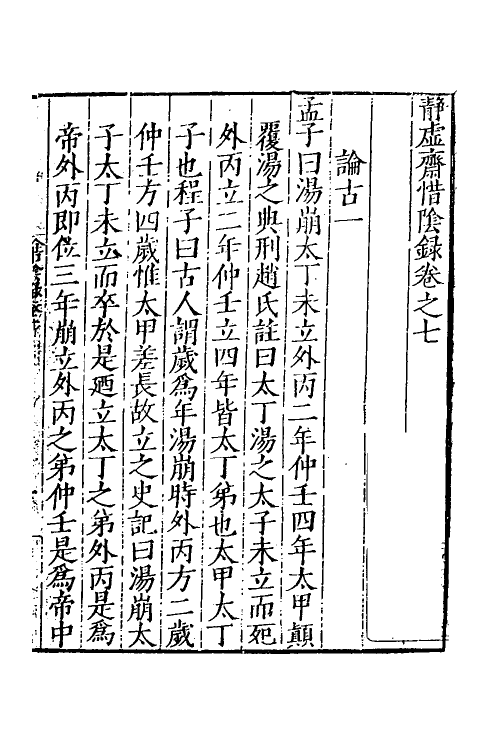 靜虛齋惜陰録卷之七
論古一
孟子曰湯崩太丁未立外丙二年仲壬四年太甲顛
覆湯之典刑趙氏註曰太丁湯之太子未立而死
外丙立二年仲壬立四年皆太丁弟也太甲太丁
子也程子曰古人謂歲爲年湯崩時外丙方二歲
仲壬方四歲惟太甲差長故立之史記曰湯崩太
子太丁未立而卒於是廼立太丁之弟外丙是爲
帝外丙即位三年崩立外丙之弟仲壬是爲帝中